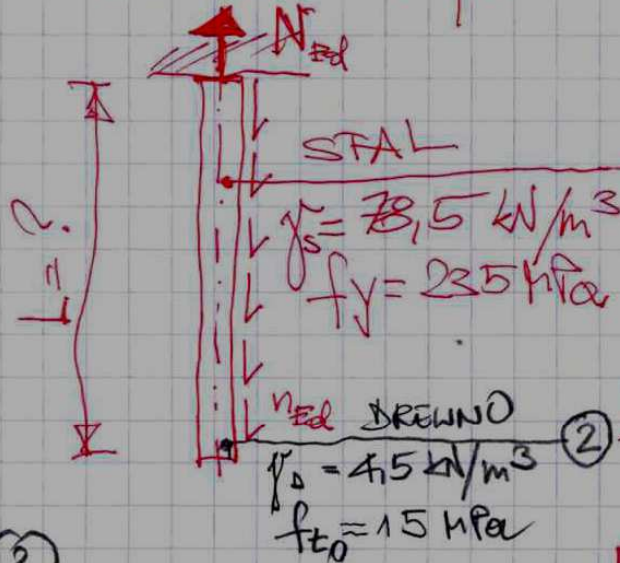 N_Ed
STAL
γ_s = 78,5 kN/m³
f_y = 235 MPa
L = ?
n_Ed DREWNO
②
γ_D = 4,5 kN/m³
f_t0 = 15 MPa